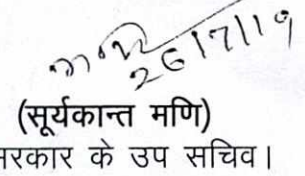 26/7/19
(सूर्यकान्त मणि)
सरकार के उप सचिव।